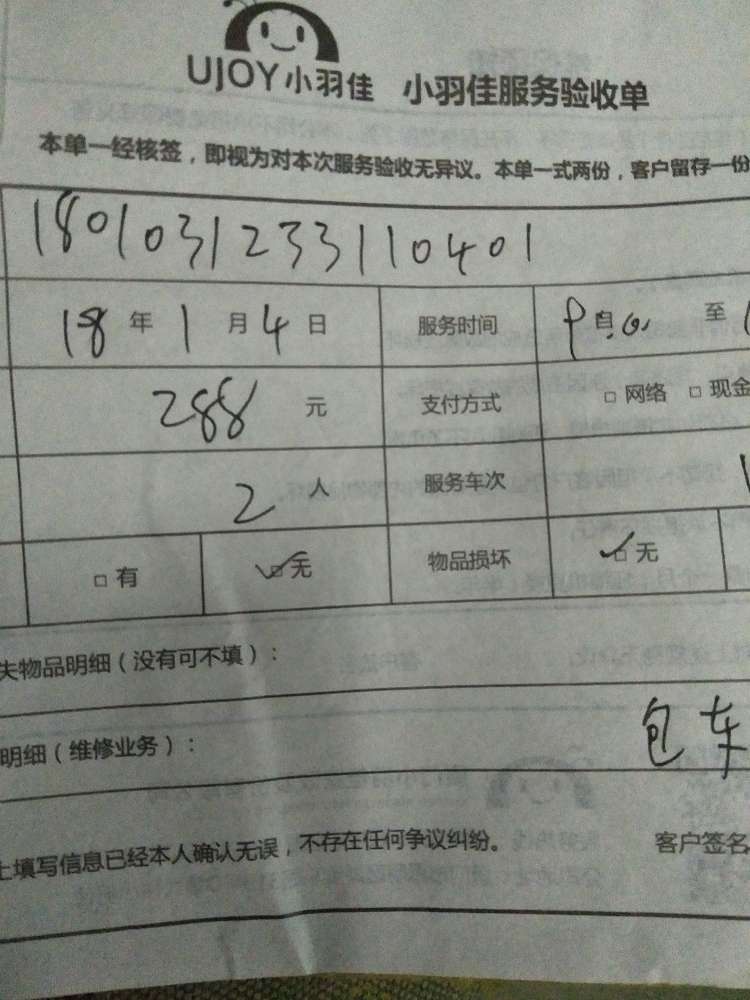 UJOY小羽佳 小羽佳服务验收单
本单一经核签，即视为对本次服务验收无异议。本单一式两份，客户留存一份
1801031233110401
18 年 1 月 4 日 服务时间 自 至
288 元 支付方式 □ 网络 □ 现金
2人 服务车次 1
□ 有 ☑ 无 物品损坏 ☑ 无
失物品明细（没有可不填）：
明细（维修业务）： 包车
上填写信息已经本人确认无误，不存在任何争议纠纷。 客户签名